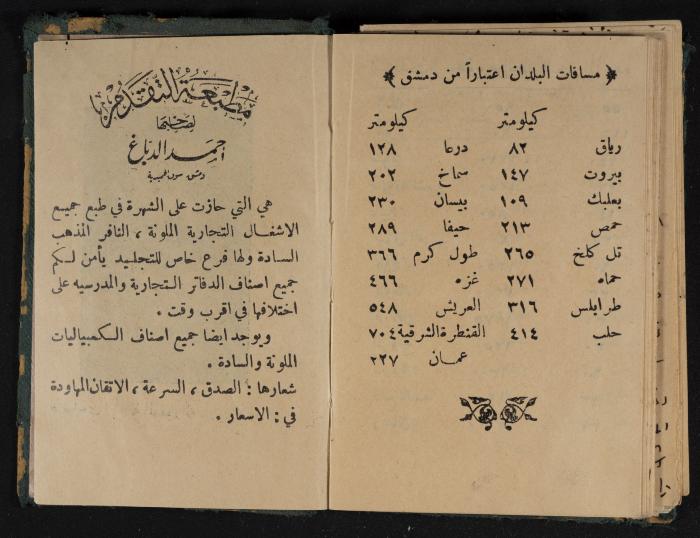 ﴿ مسافات البلدان اعتباراً من دمشق ﴾
كيلومتر كيلومتر
رياق ٨٢ درعا ١٢٨
بيروت ١٤٧ سماخ ٢٠٢
بعلبك ١٠٩ بيسان ٢٣٠
حمص ٢١٣ حيفا ٢٨٩
تل كلخ ٢٦٥ طول كرم ٣٦٦
حماه ٢٧١ غزه ٤٦٦
طرابلس ٣١٦ العريش ٥٤٨
حلب ٤١٤ القنطرة الشرقية ٧٠٤
عمان ٢٢٧
مطبعة التقدم
لصاحبها
احمد الدباغ
هي التي حازت على الشهرة في طبع جميع
الاشغال التجارية الملونة ، النافر المذهب
السادة ولها فرع خاص للتجليد يأمن لكم
جميع اصناف الدفاتر التجارية والمدرسيه على
اختلافها في اقرب وقت .
ويوجد ايضا جميع اصناف الكمبياليات
الملونة والسادة .
شعارها : الصدق ، السرعة ، الاتقان المهاودة
في : الاسعار .